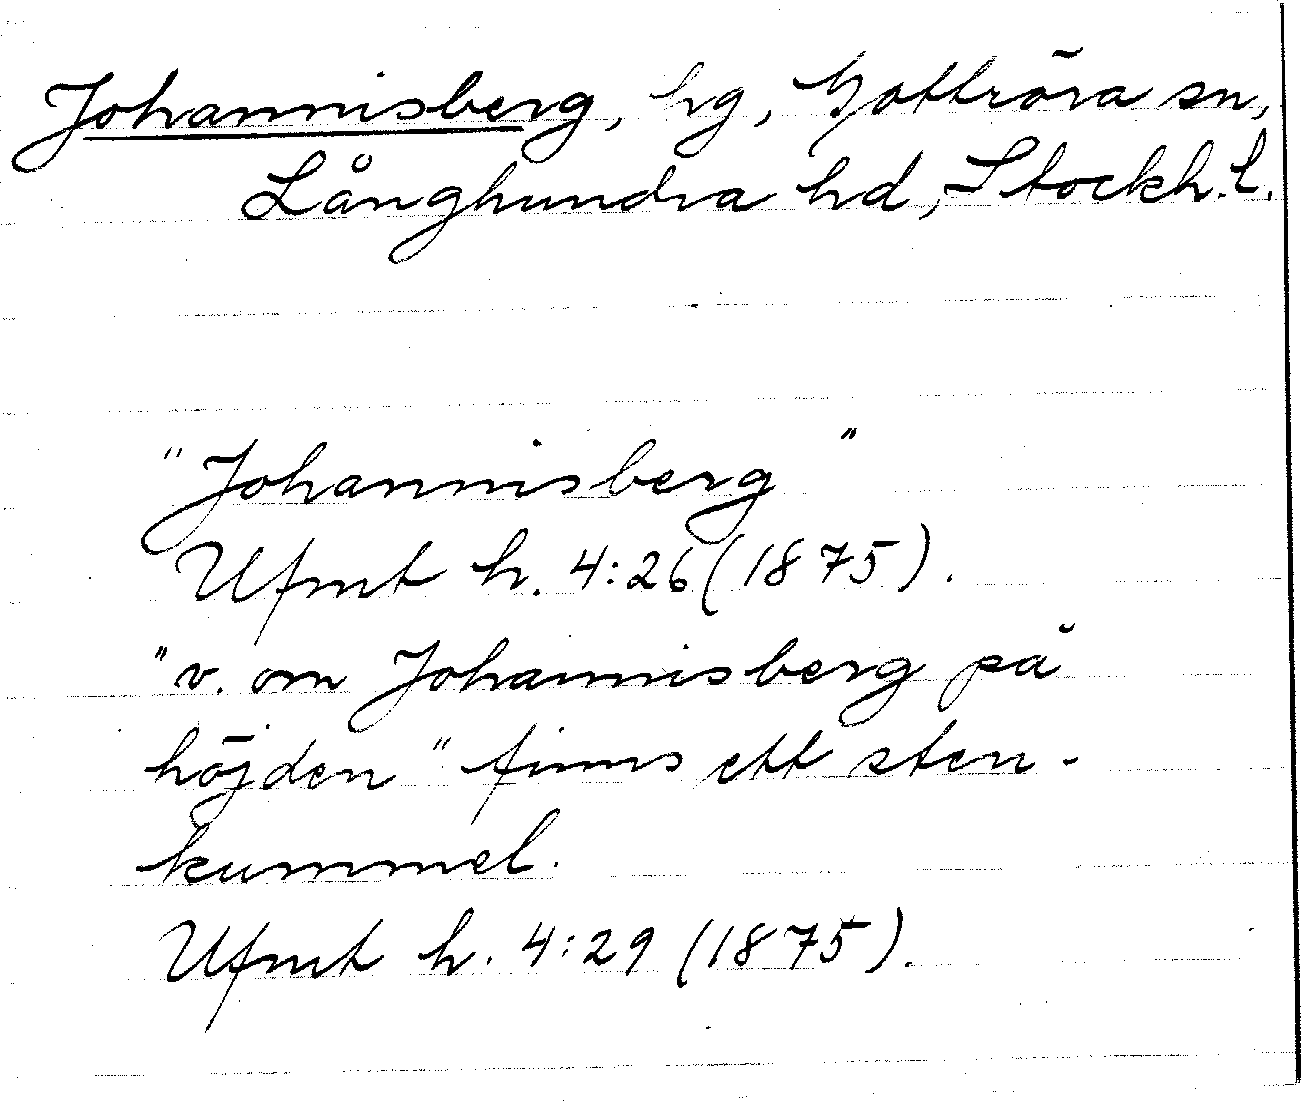 Johannisberg, hg, Gottröra sn,
Långhundra hd, Stockh. l.
"Johannisberg"
Ufmt h. 4:26 (1875).
"v. om Johannisberg på
höjden" finns ett sten-
kummel.
Ufmt h. 4:29 (1875).